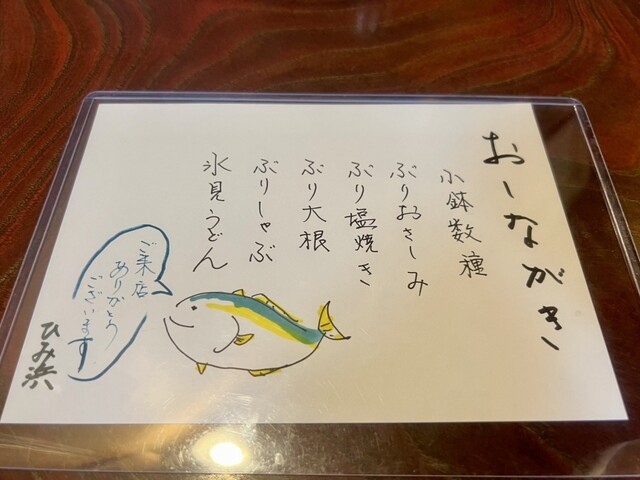 おしながき
小鉢数種
ぶりおさしみ
ぶり塩焼き
ぶり大根
ぶりしゃぶ
氷見うどん
ご来店
ありがとう
ございます
ひみ浜